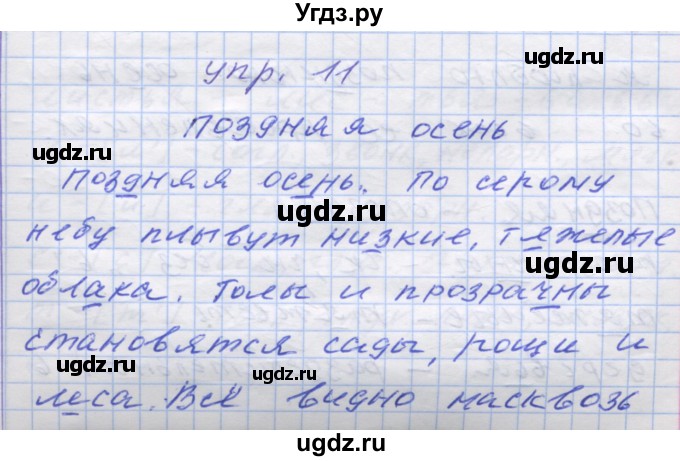 Угdз.ру
ugdz.ru
упр. 11
ugdz.ru
поздняя осень
ugdz.ru
ugdz.ru
поздняя осень. По серому
небу плывут низкие, тяжелые
ugdz.ru
облака. Голы и прозрачны
становятся сады, рощи и
ugdz.ru
ugdz.ru
леса. Всё видно насквозь
ugdz.ru